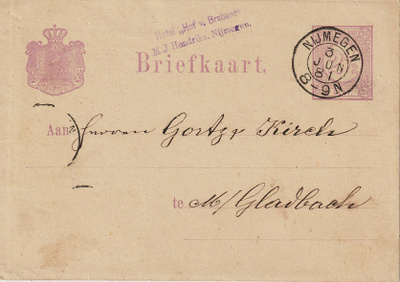 Hotel „Hof v. Brabant"
M. J. Hendriks, Nijmegen.
Briefkaart.
NIJMEGEN
3
JUN
81
8-9N
Aan Herren Gortz & Kirch
te M/Gladbach